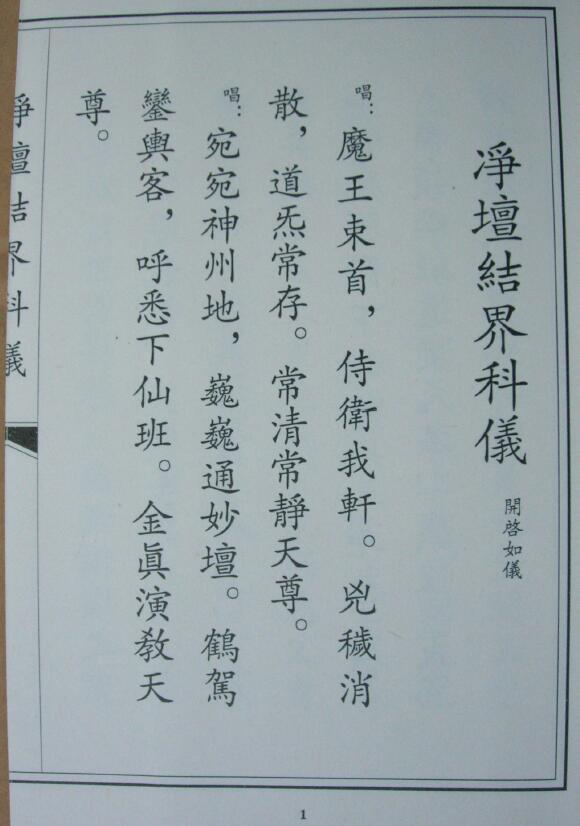 淨壇結界科儀
開啓如儀
唱：魔王束首，侍衛我軒。兇穢消
散，道炁常存。常清常靜天尊。
唱：宛宛神州地，巍巍通妙壇。鶴駕
鑾輿客，呼悉下仙班。金眞演教天
尊。
淨壇結界科儀
1